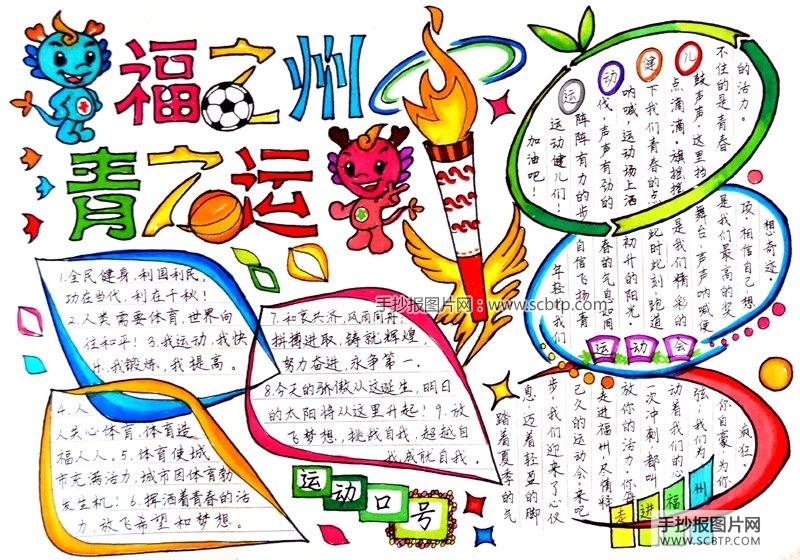 福之州
青之运
1.全民健身，利国利民，
功在当代，利在千秋！
2.人类需要体育，世界向
往和平！3.我运动，我快
4.我锻炼，我提高。
4.人
人关心体育，体育造
福人人。5.体育使城
市充满活力，城市因体育勃
发生机！6.挥洒着青春的活
力，放飞希望和梦想。
7.和衷共济，风雨同舟，
拼搏进取，铸就辉煌，
努力奋进，永争第一。
8.今天的骄傲从这诞生，明日
的太阳将从这里升起！9.放
飞梦想，挑战自我，超越自
我成就自我。
运动口号
运动健儿
的活力。
不住的是青春
鼓声声，这里挡
点滴滴，旗摇摇
下我们青春的点
呐喊，运动场上洒
伐，声声有劲的
阵阵有力的步
运动健儿们！
加油吧！
想奇迹，
项，相信自己，
是我们最高的奖
舞台，声声呐喊使
是我们精彩的
此时此刻，跑道
初升的阳光，
春的气息如同
自信飞扬，青
年轻的我们
运动会
疯狂，
你自豪，为你
弦，我们为
动着我们的心
一次冲刺都叫
放你的活力，你每
走进福州，尽情释
己久的运动会来吧
步，我们迎来了心仪
息，迈着轻盈的脚
踏着夏季的气
走进福州
手抄报图片网：www.scbtp.com
手抄报图片网
SCBTP.COM